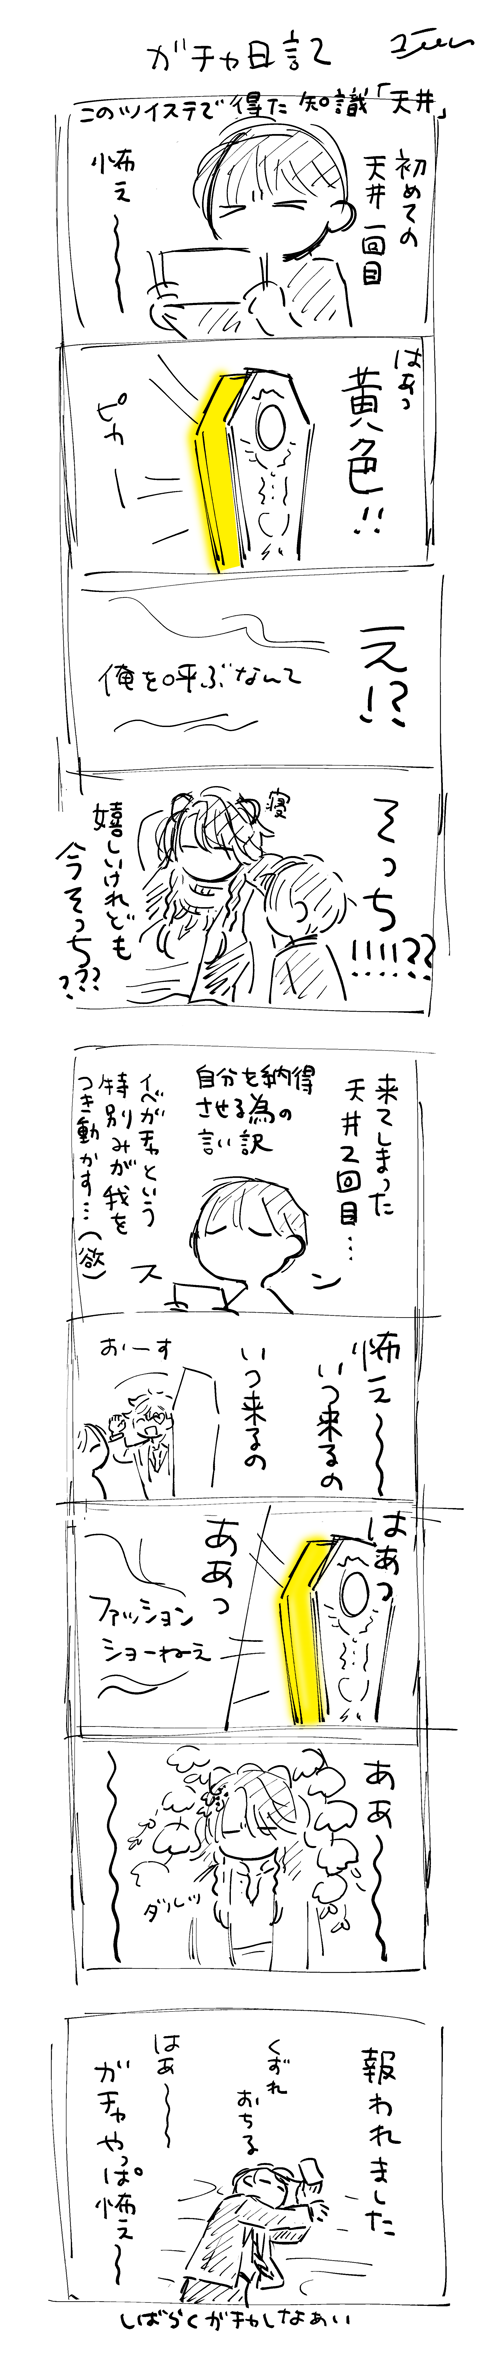 ガチャ日記
このツイステで得た知識「天井」
初めての
天井一回目
怖え〜〜〜
はあっ
黄色!!
ピカー
え!?
俺を呼ぶなんて
そっち!!!!??
寝
嬉しいけれども
今そっち???
来てしまった
天井2回目…
自分を納得
させる為の
言い訳
イベガチャという
特別みが我を
つき動かす…(欲)
スン
怖え〜〜
いつ来るの
いつ来るの
おーす
はあっ
ああっ
ファッション
ショーねえ
ああ〜〜〜
ダルッ
報われました
くずれ
おちる
はあ〜〜
ガチャやっぱ怖え〜
しばらくガチャしなあい